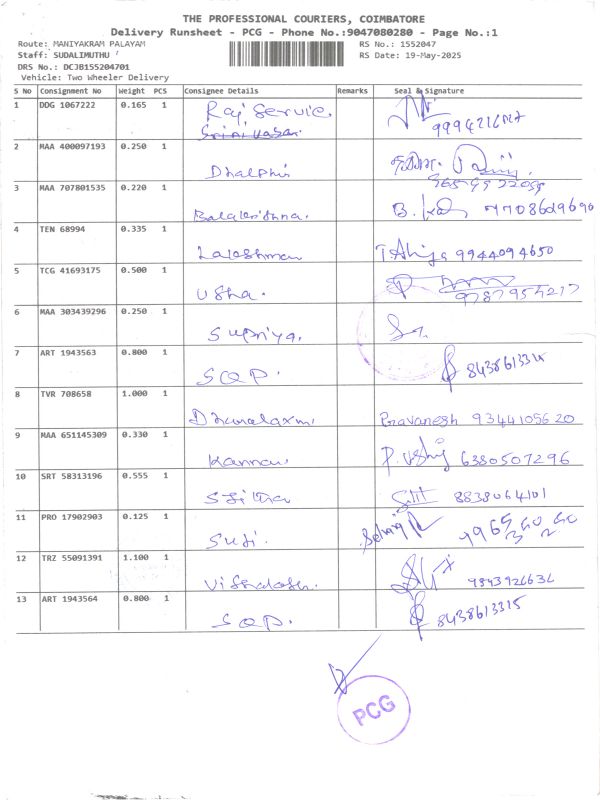 THE PROFESSIONAL COURIERS, COIMBATORE
Delivery Runsheet - PCG - Phone No.:9047080280 - Page No.:1
Route: MANIYAKRAM PALAYAM RS No.: 1552047
Staff: SUDALIMUTHU RS Date: 19-May-2025
DRS No.: DCJB155204701
Vehicle: Two Wheeler Delivery
S No Consignment No Weight PCS Consignee Details Remarks Seal & Signature
1 DDG 1067222 0.165 1 Raj Service.
2 MAA 400097193 0.250 1 Dhalphin
3 MAA 707801535 0.220 1 Balakrishna. 7708629690
4 TEN 68994 0.335 1 Lakshman 9944094650
5 TCG 41693175 0.500 1 Usha. 9787954217
6 MAA 303439296 0.250 1 Supriya.
7 ART 1943563 0.800 1 SQP.
8 TVR 708658 1.000 1 Dhanalaxmi Pravanesh 9344105620
9 MAA 651145309 0.330 1 Kannan. 6380507296
10 SRT 58313196 0.555 1 8838064101
11 PRO 17902903 0.125 1 Suji.
12 TRZ 55091391 1.100 1
13 ART 1943564 0.800 1 SQP. 8438613315
PCG